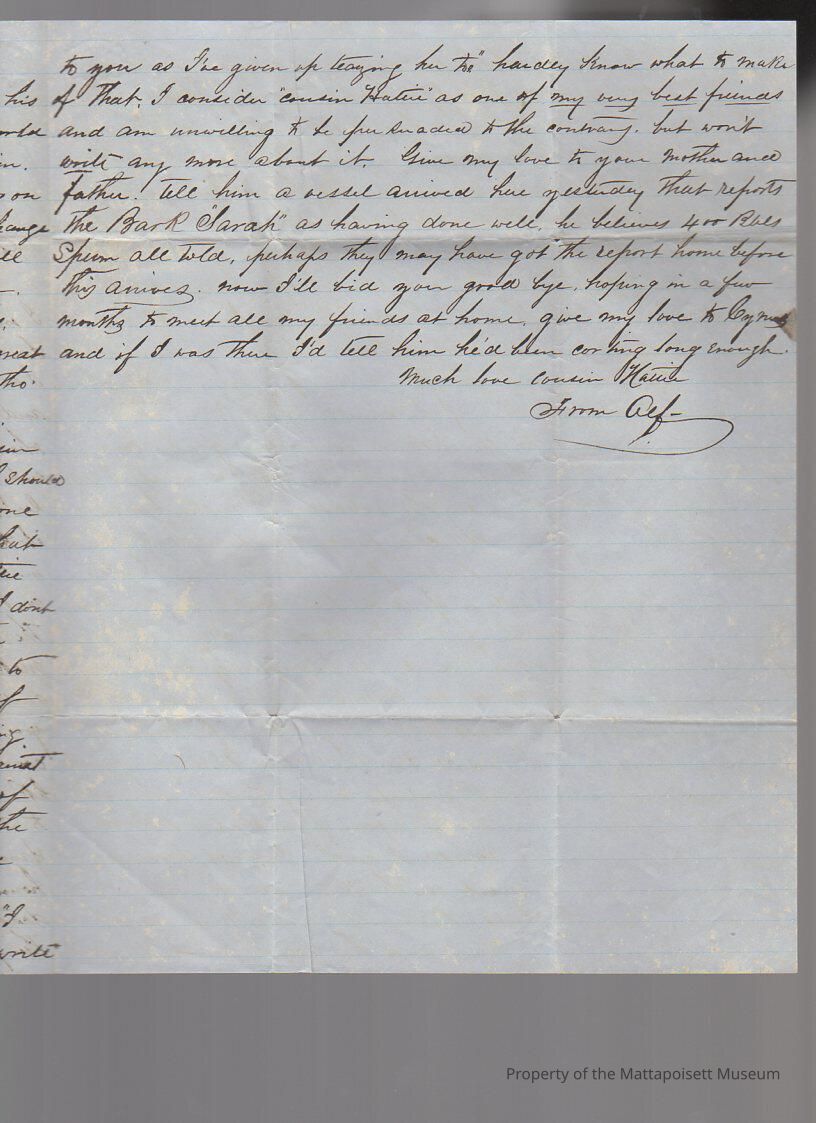 to you as I've given up teazing her &
" hardey know what to make
of that. I consider "cousin Hattie" as one of my very best friends
and am unwilling to be pursuaded to the contrary. but won't
write any more about it. Give my love to your mother and
father. tell him a vessel arrived here yesterday that reports
the Bark "Sarah" as having done well, he believes 400 Bbls
Sperm all told, perhaps they may have got the report home before
this arrives. now I'll bid you good bye, hoping in a few
months to meet all my friends at home. give my love to Cyrus
and if I was there I'd tell him he'd been corting long enough.
Much love cousin Hattie
From Alf-
his
on
hange
tho.
should
one
hat
I dont
to
of
the
"I
write
Property of the Mattapoisett Museum